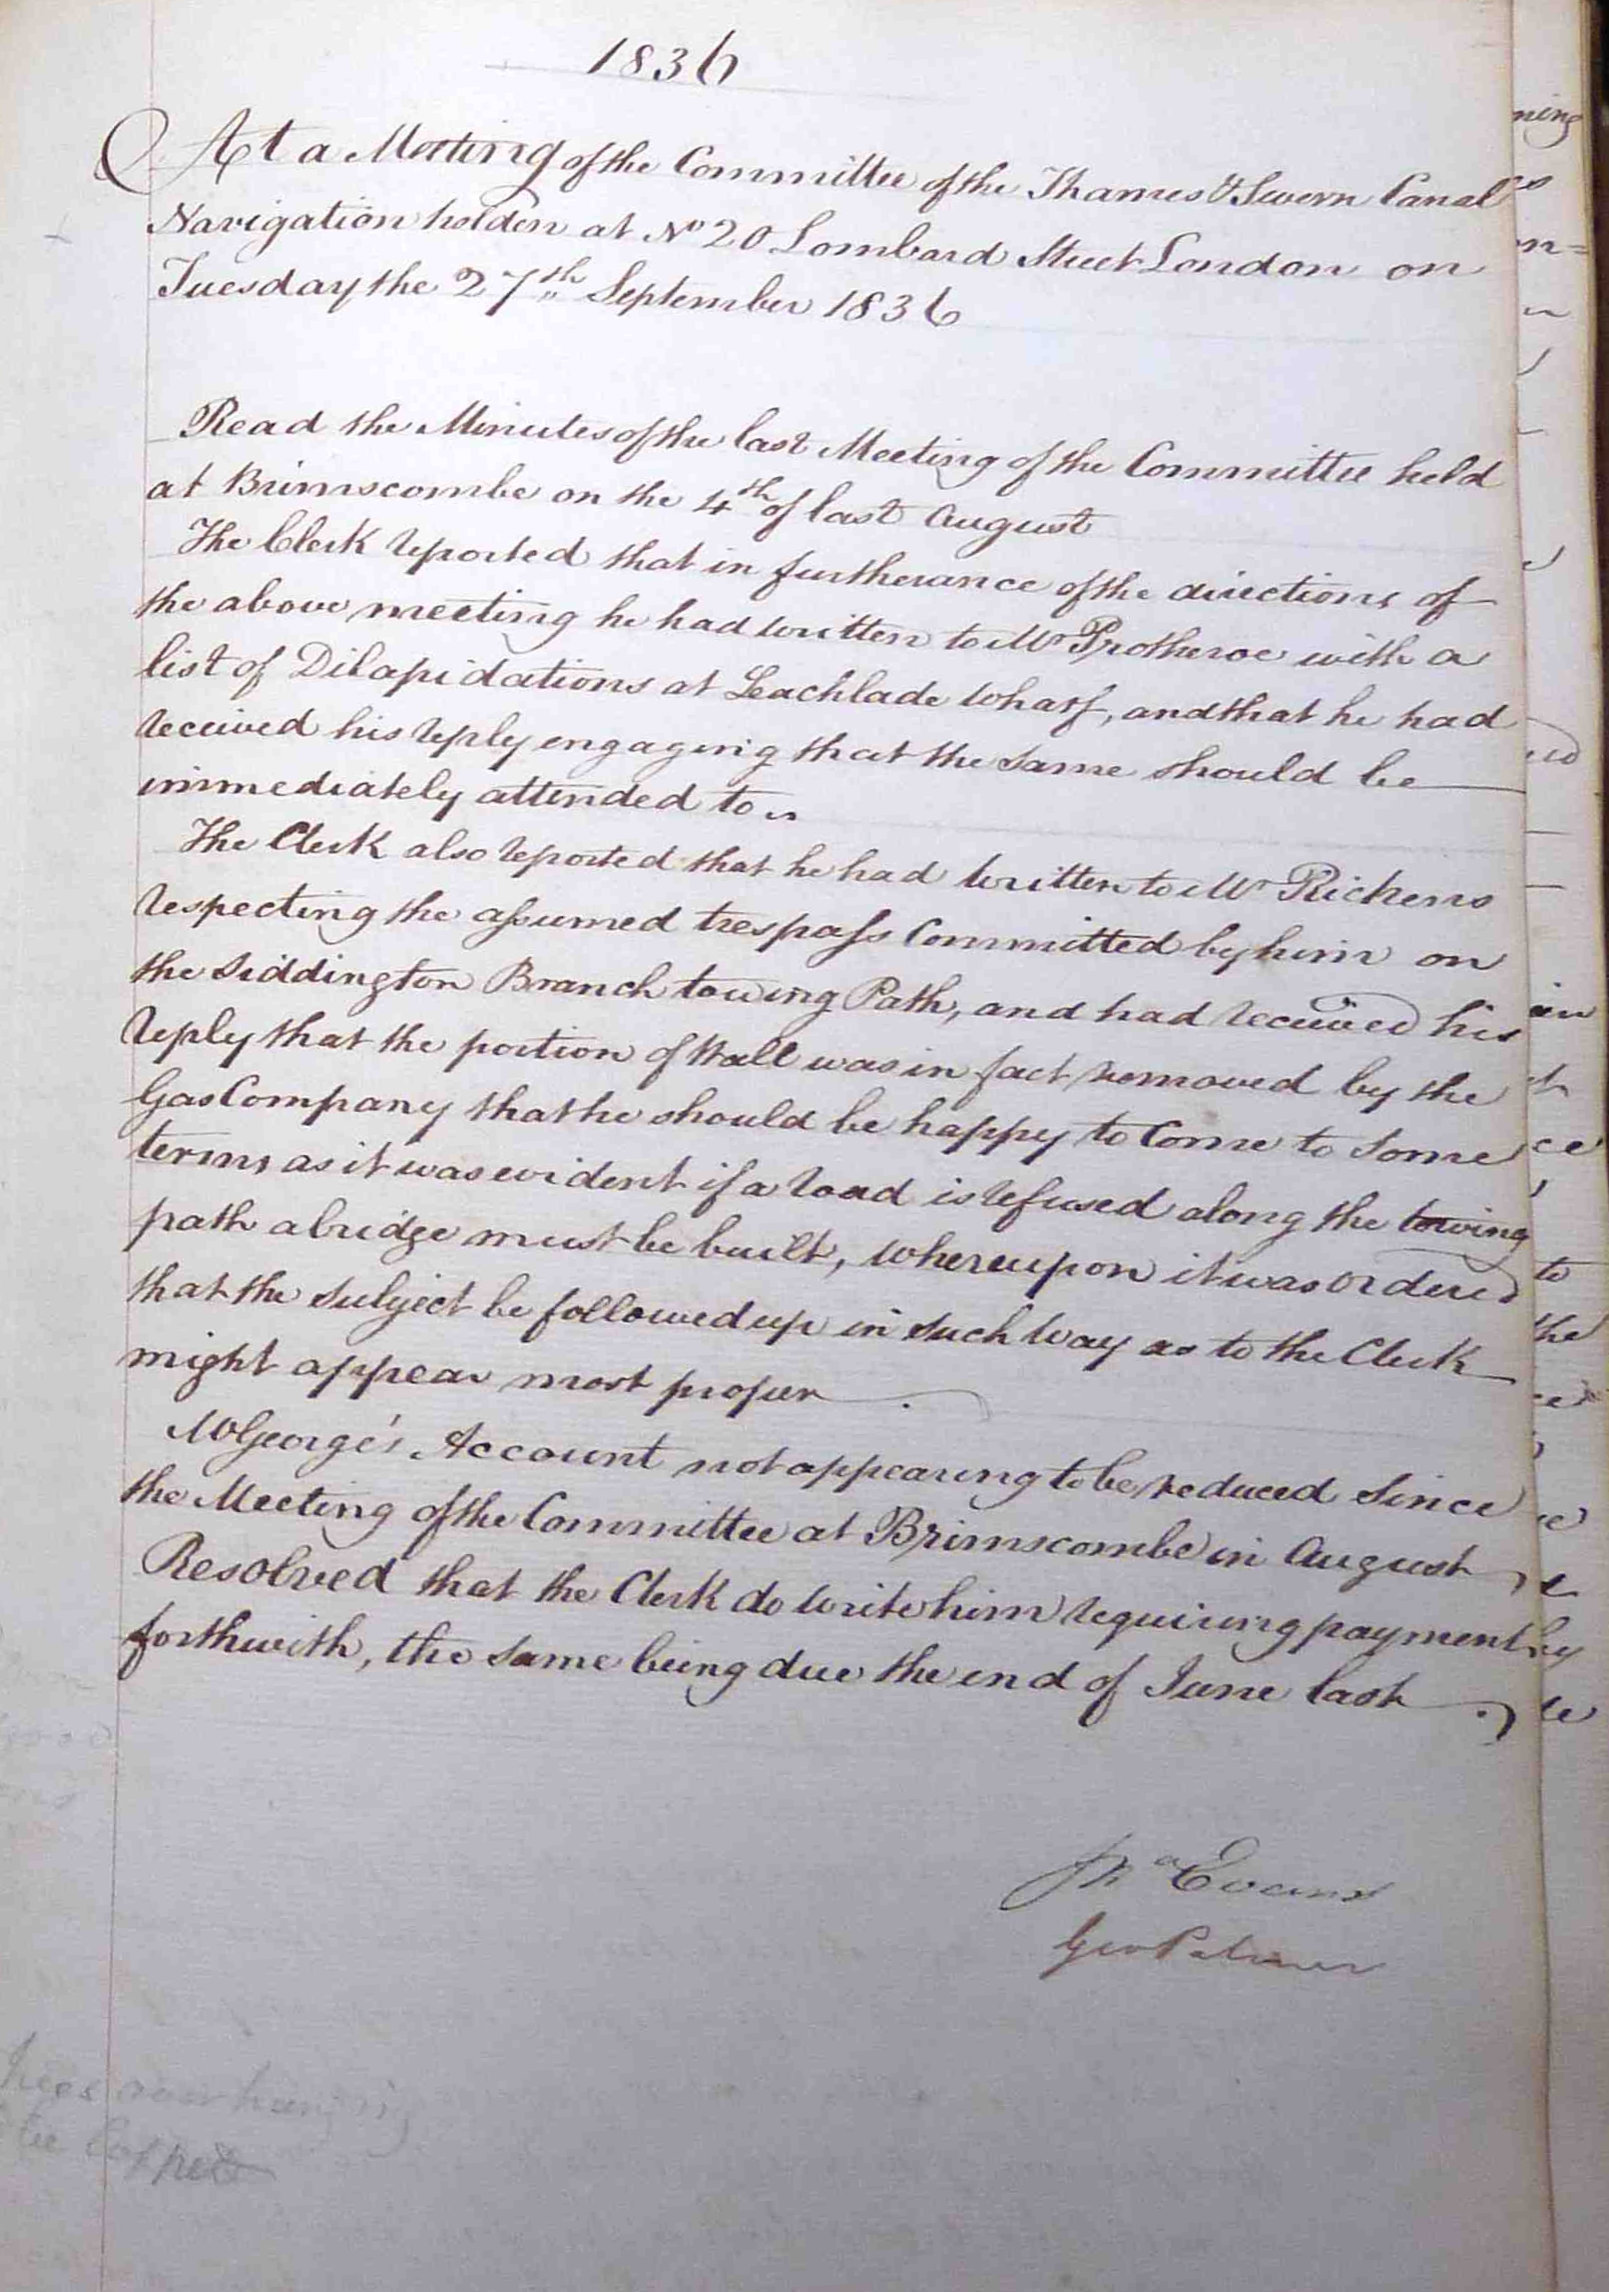 1836
At a Meeting of the Committee of the Thames & Severn Canal
Navigation holden at No 20 Lombard Street London on
Tuesday the 27th September 1836
Read the Minutes of the last Meeting of the Committee held
at Brimscombe on the 4th of last August
The Clerk reported that in furtherance of the directions of
the above meeting he had written to Mr Protheroe with a
list of Dilapidations at Leachlade Wharf, and that he had
received his reply engaging that the same should be
immediately attended to
The Clerk also reported that he had written to Mr Rickens
respecting the assumed trespass Committed by him on
the Siddington Branch towing Path, and had received his
reply that the portion of Wall was in fact removed by the
Gas Company that he should be happy to Come to Some
terms as it was evident if a road is refused along the towing
path a bridge must be built, whereupon it was ordered
that the subject be followed up in such way as to the Clerk
might appear most proper.
Mr George's Account not appearing to be reduced since
the Meeting of the Committee at Brimscombe in August
Resolved that the Clerk do write him requiring payment
forthwith, the same being due the end of June last.
Evans
Geo Palmer
trees overhanging
lopped
ning
on=
in
ce
to
the
by